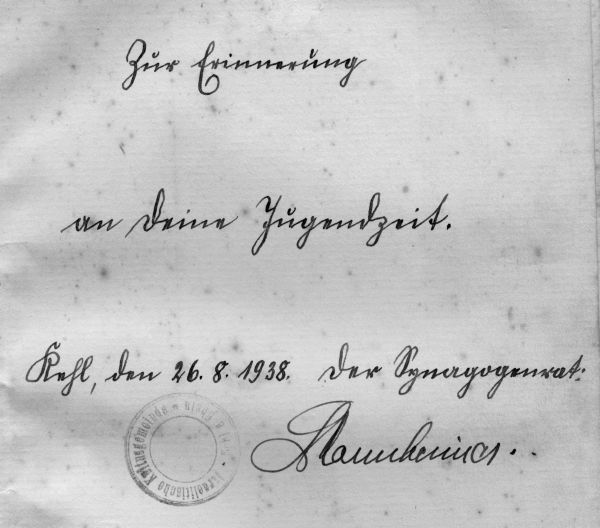 Zur Erinnerung
an deine Jugendzeit.
Kehl, den 26. 8. 1938. Der Synagogenrat:
Mannheimer.
Israelitische Kultusgemeinde